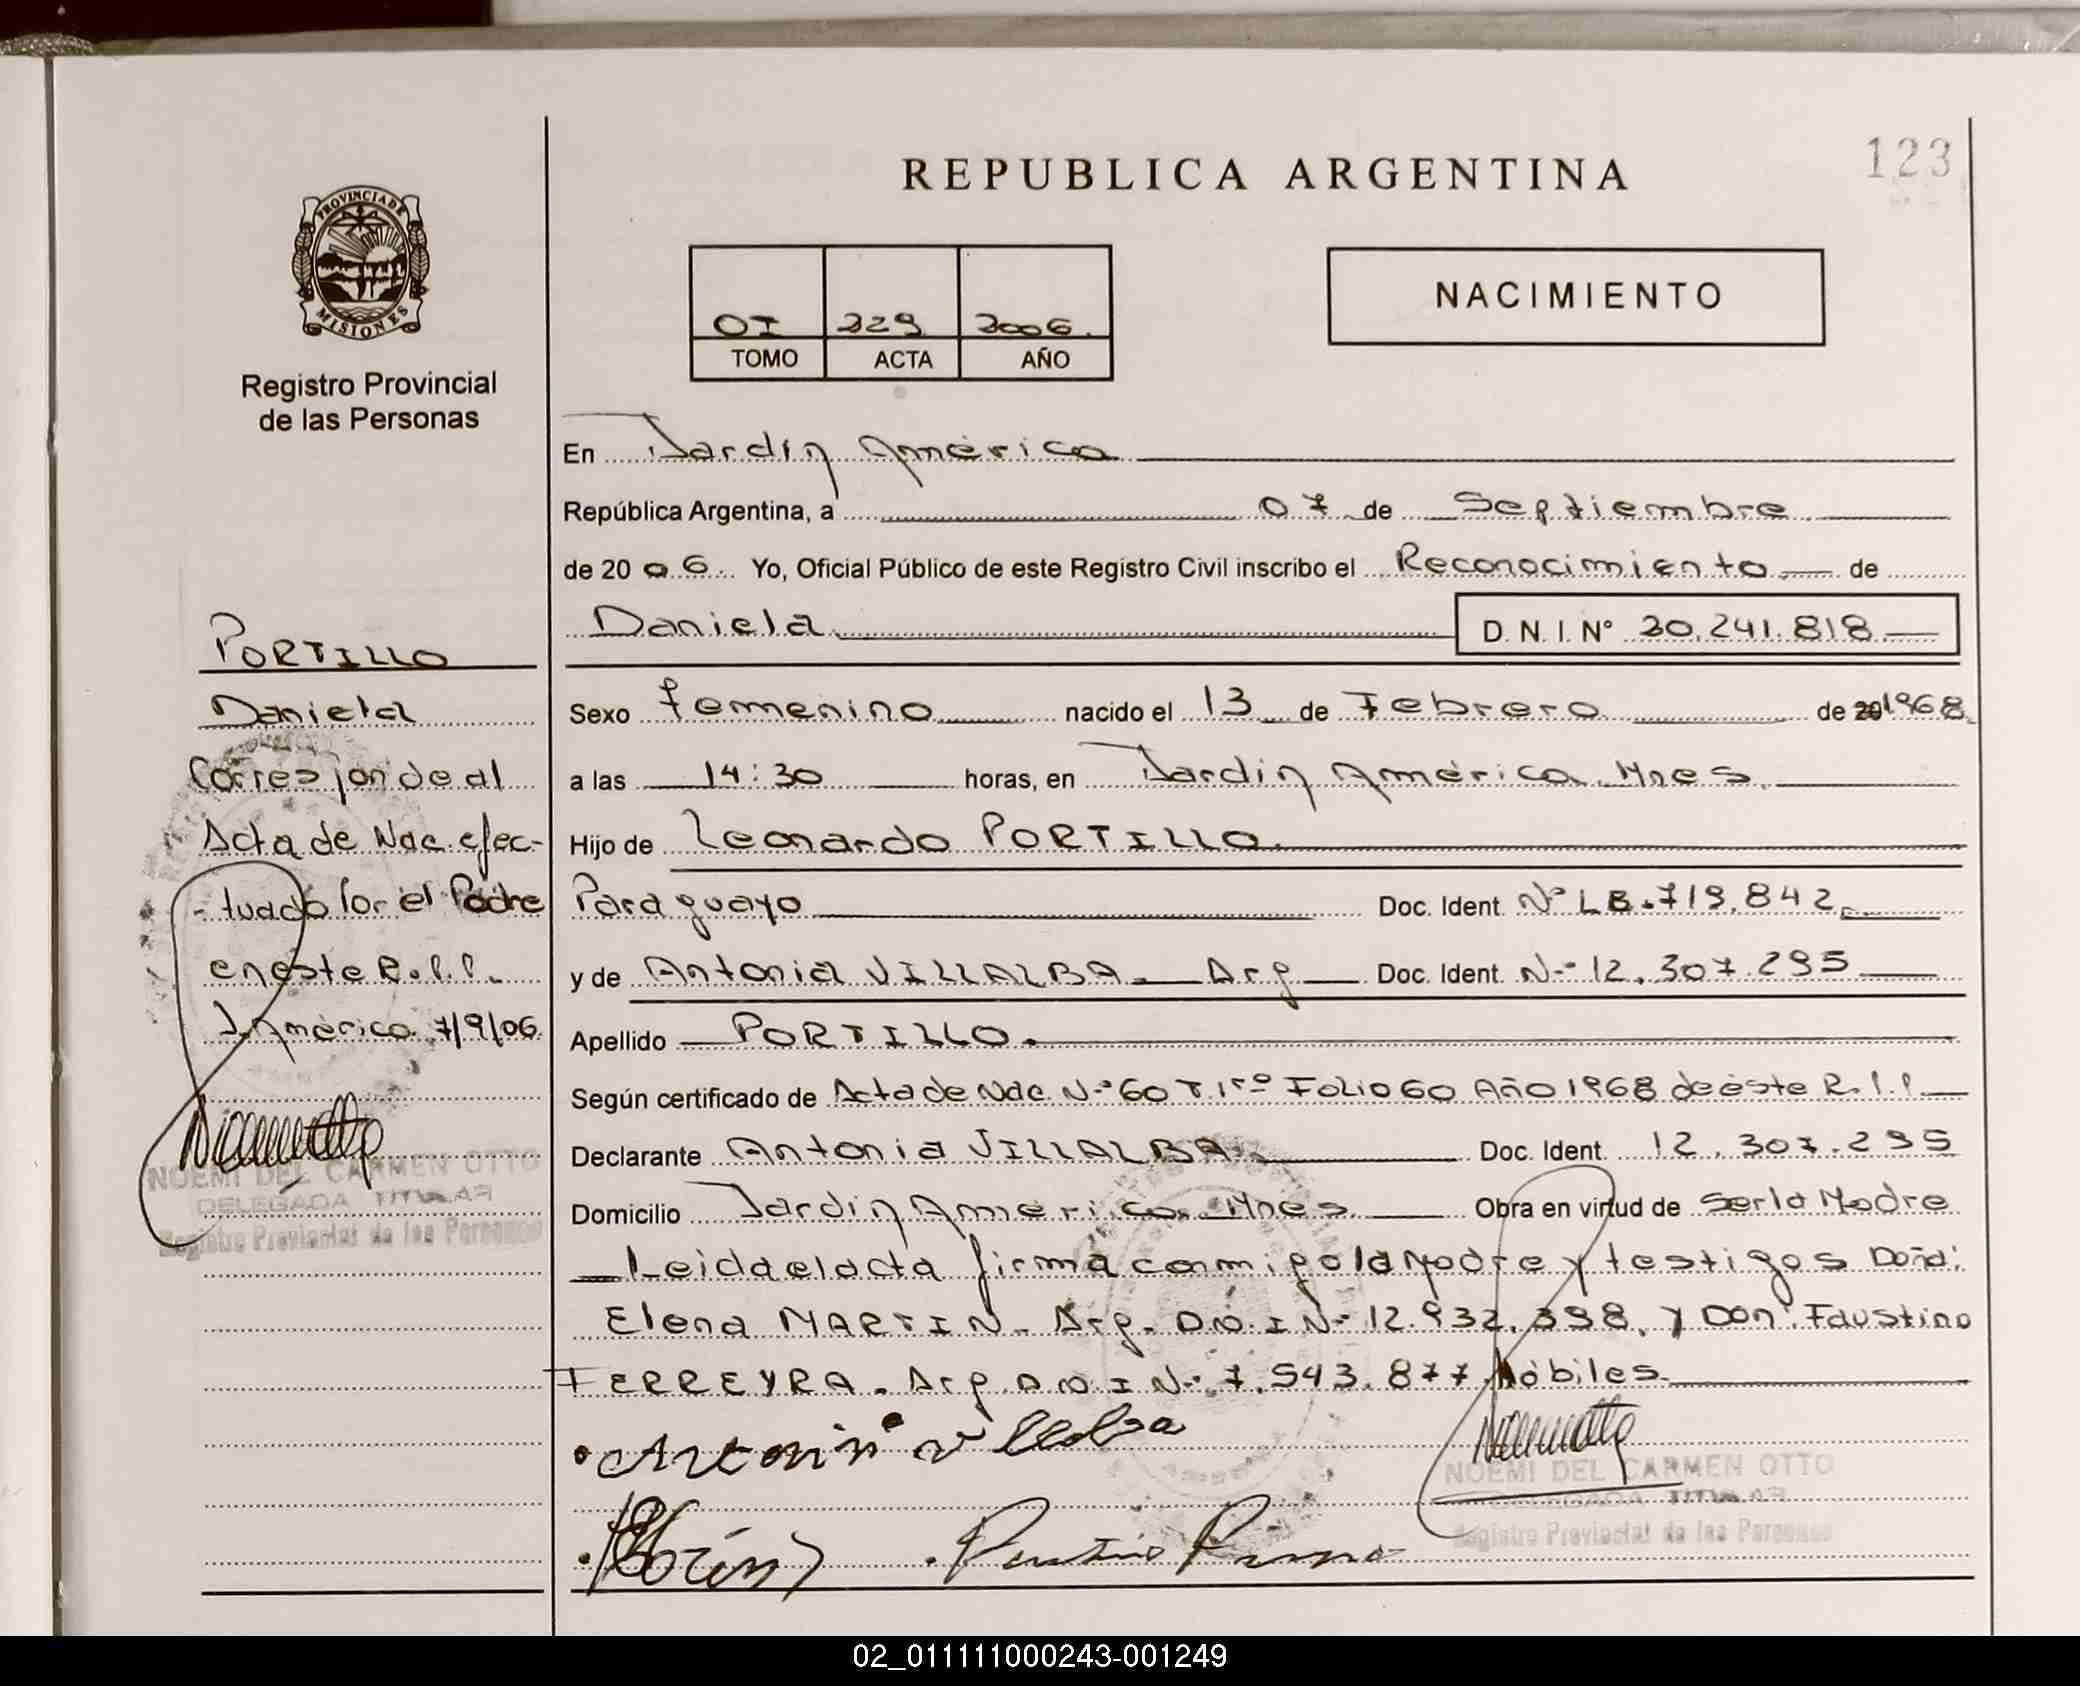 REPUBLICA ARGENTINA
123
PROVINCIA DE MISIONES
Registro Provincial
de las Personas
OI 229 2006.
TOMO ACTA AÑO
NACIMIENTO
En Jardín América
República Argentina, a 07 de Septiembre
de 20 06 Yo, Oficial Público de este Registro Civil inscribo el Reconocimiento de
Daniela D. N. I. N° 20.241.818
Sexo femenino nacido el 13 de Febrero de 20 1968
a las 14:30 horas, en Jardín América Mnes.
Hijo de Leonardo PORTILLO.
Paraguayo Doc. Ident. Nº LB. 719.842
y de Antonia VILLALBA. Arg Doc. Ident. Nº 12.307.295
Apellido PORTILLO.
Según certificado de Acta de Nac Nº 60 T. 1rº Folio 60 Año 1968 de éste R.P.P.
Declarante Antonia VILLALBA. Doc. Ident. 12.307.295
Domicilio Jardín América. Mnes. Obra en virtud de ser la Madre
Leida el acta firma conmigo la Madre y testigos Doña:
Elena MARTIN. Arg. D.N.I Nº 12.932.398. y Don: Faustino
FERREYRA. Arg D.N.I Nº 7.543.877 Hábiles.
PORTILLO
Daniela
Corresponde al
Acta de Nac. efec-
-tuado por el Padre
en este R.P.P.
J. América. 7/9/06.
NOEMI DEL CARMEN OTTO
DELEGADA TITULAR
Registro Provincial de las Personas
Antonia Villalba
NOEMI DEL CARMEN OTTO
DELEGADA TITULAR
Registro Provincial de las Personas
02_011111000243-001249